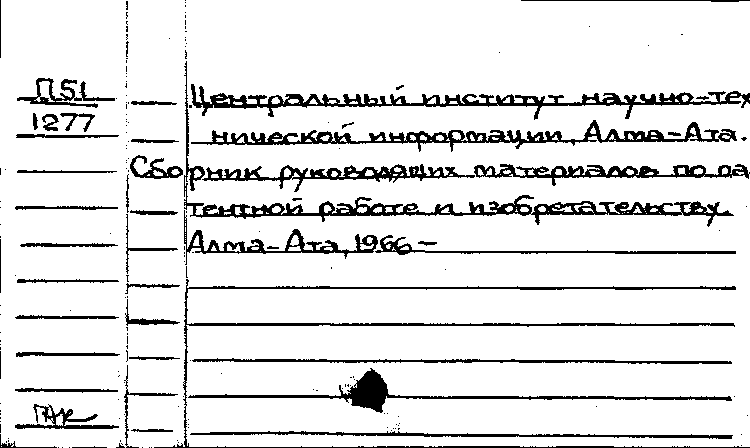 П51
1277
Центральный институт научно-тех
нической информации, Алма-Ата.
Сборник руководящих материалов по па
тентной работе и изобретательству.
Алма-Ата, 1966-